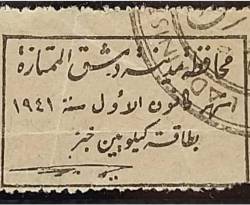 محافظة مدينة دمشق الممتازة
اشهر كانون الاول سنة ١٩٤١
بطاقة كيلوين خبز